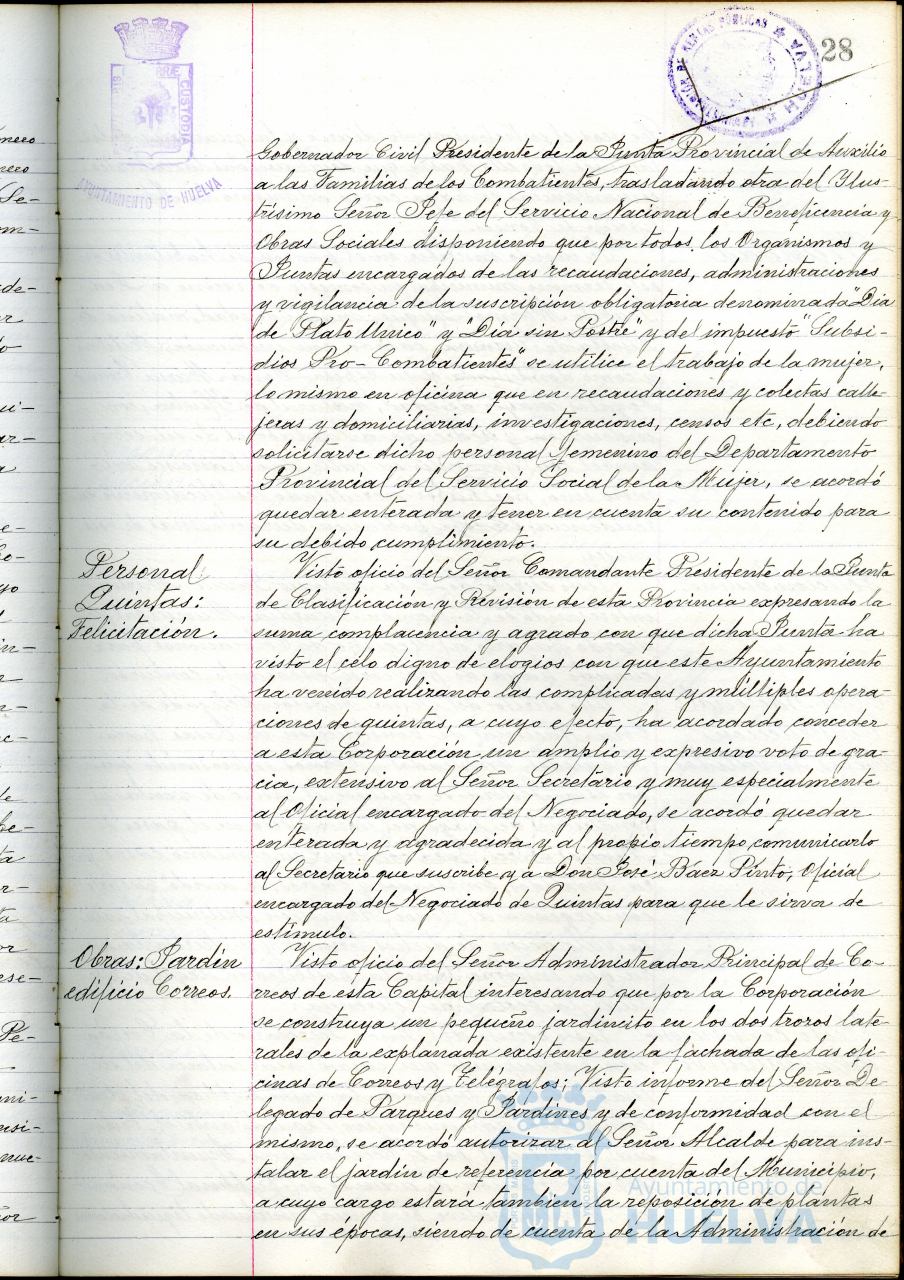 28
AYUNTAMIENTO DE HUELVA
Gobernador Civil Presidente de la Junta Provincial de Auxilio
a las Familias de los Combatientes, trasladando otra del Ylus-
trísimo Señor Jefe del Servicio Nacional de Beneficencia y
Obras Sociales disponiendo que por todos los Organismos y
Juntas encargados de las recaudaciones, administraciones
y vigilancia de la suscripción obligatoria denominada "Dia
de Plato Unico" y "Dia sin Postre" y del impuesto "Subsi-
dios Pro-Combatientes" se utilice el trabajo de la mujer,
lo mismo en oficina que en recaudaciones y colectas calle-
jeras y domiciliarias, investigaciones, censos etc, debiendo
solicitarse dicho personal femenino del Departamento
Provincial del Servicio Social de la Mujer, se acordó
quedar enterada y tener en cuenta su contenido para
su debido cumplimiento.
Personal
Quintas:
Felicitación.
Visto oficio del Señor Comandante Presidente de la Junta
de Clasificación y Revisión de esta Provincia expresando la
suma complacencia y agrado con que dicha Junta ha
visto el celo digno de elogios con que este Ayuntamiento
ha venido realizando las complicadas y múltiples opera-
ciones de quintas, a cuyo efecto, ha acordado conceder
a esta Corporación un amplio y expresivo voto de gra-
cia, extensivo al Señor Secretario y muy especialmente
al Oficial encargado del Negociado, se acordó quedar
enterada y agradecida y al propio tiempo comunicarlo
al Secretario que suscribe y a Don José Báez Pinto, Oficial
encargado del Negociado de Quintas para que le sirva de
estímulo.
Obras: Jardín
edificio Correos.
Visto oficio del Señor Administrador Principal de Co-
rreos de esta Capital interesando que por la Corporación
se construya un pequeño jardincito en los dos trozos late-
rales de la explanada existente en la fachada de las ofi-
cinas de Correos y Telégrafos; Visto informe del Señor De-
legado de Parques y Jardines y de conformidad con el
mismo, se acordó autorizar al Señor Alcalde para ins-
talar el jardín de referencia por cuenta del Municipio,
a cuyo cargo estará tambien la reposición de plantas
en sus épocas, siendo de cuenta de la Administración de
Ayuntamiento de
HUELVA